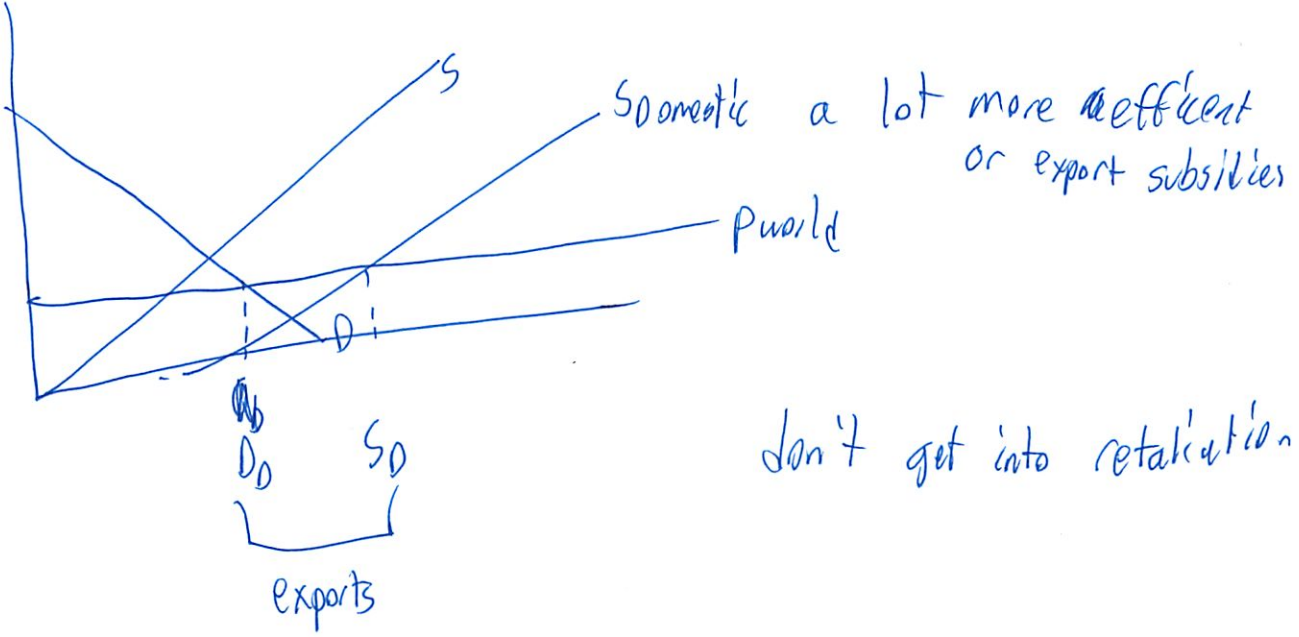 S
SDomestic a lot more efficent
or export subsidies
Pworld
D
DD
SD
exports
don't get into retaliation